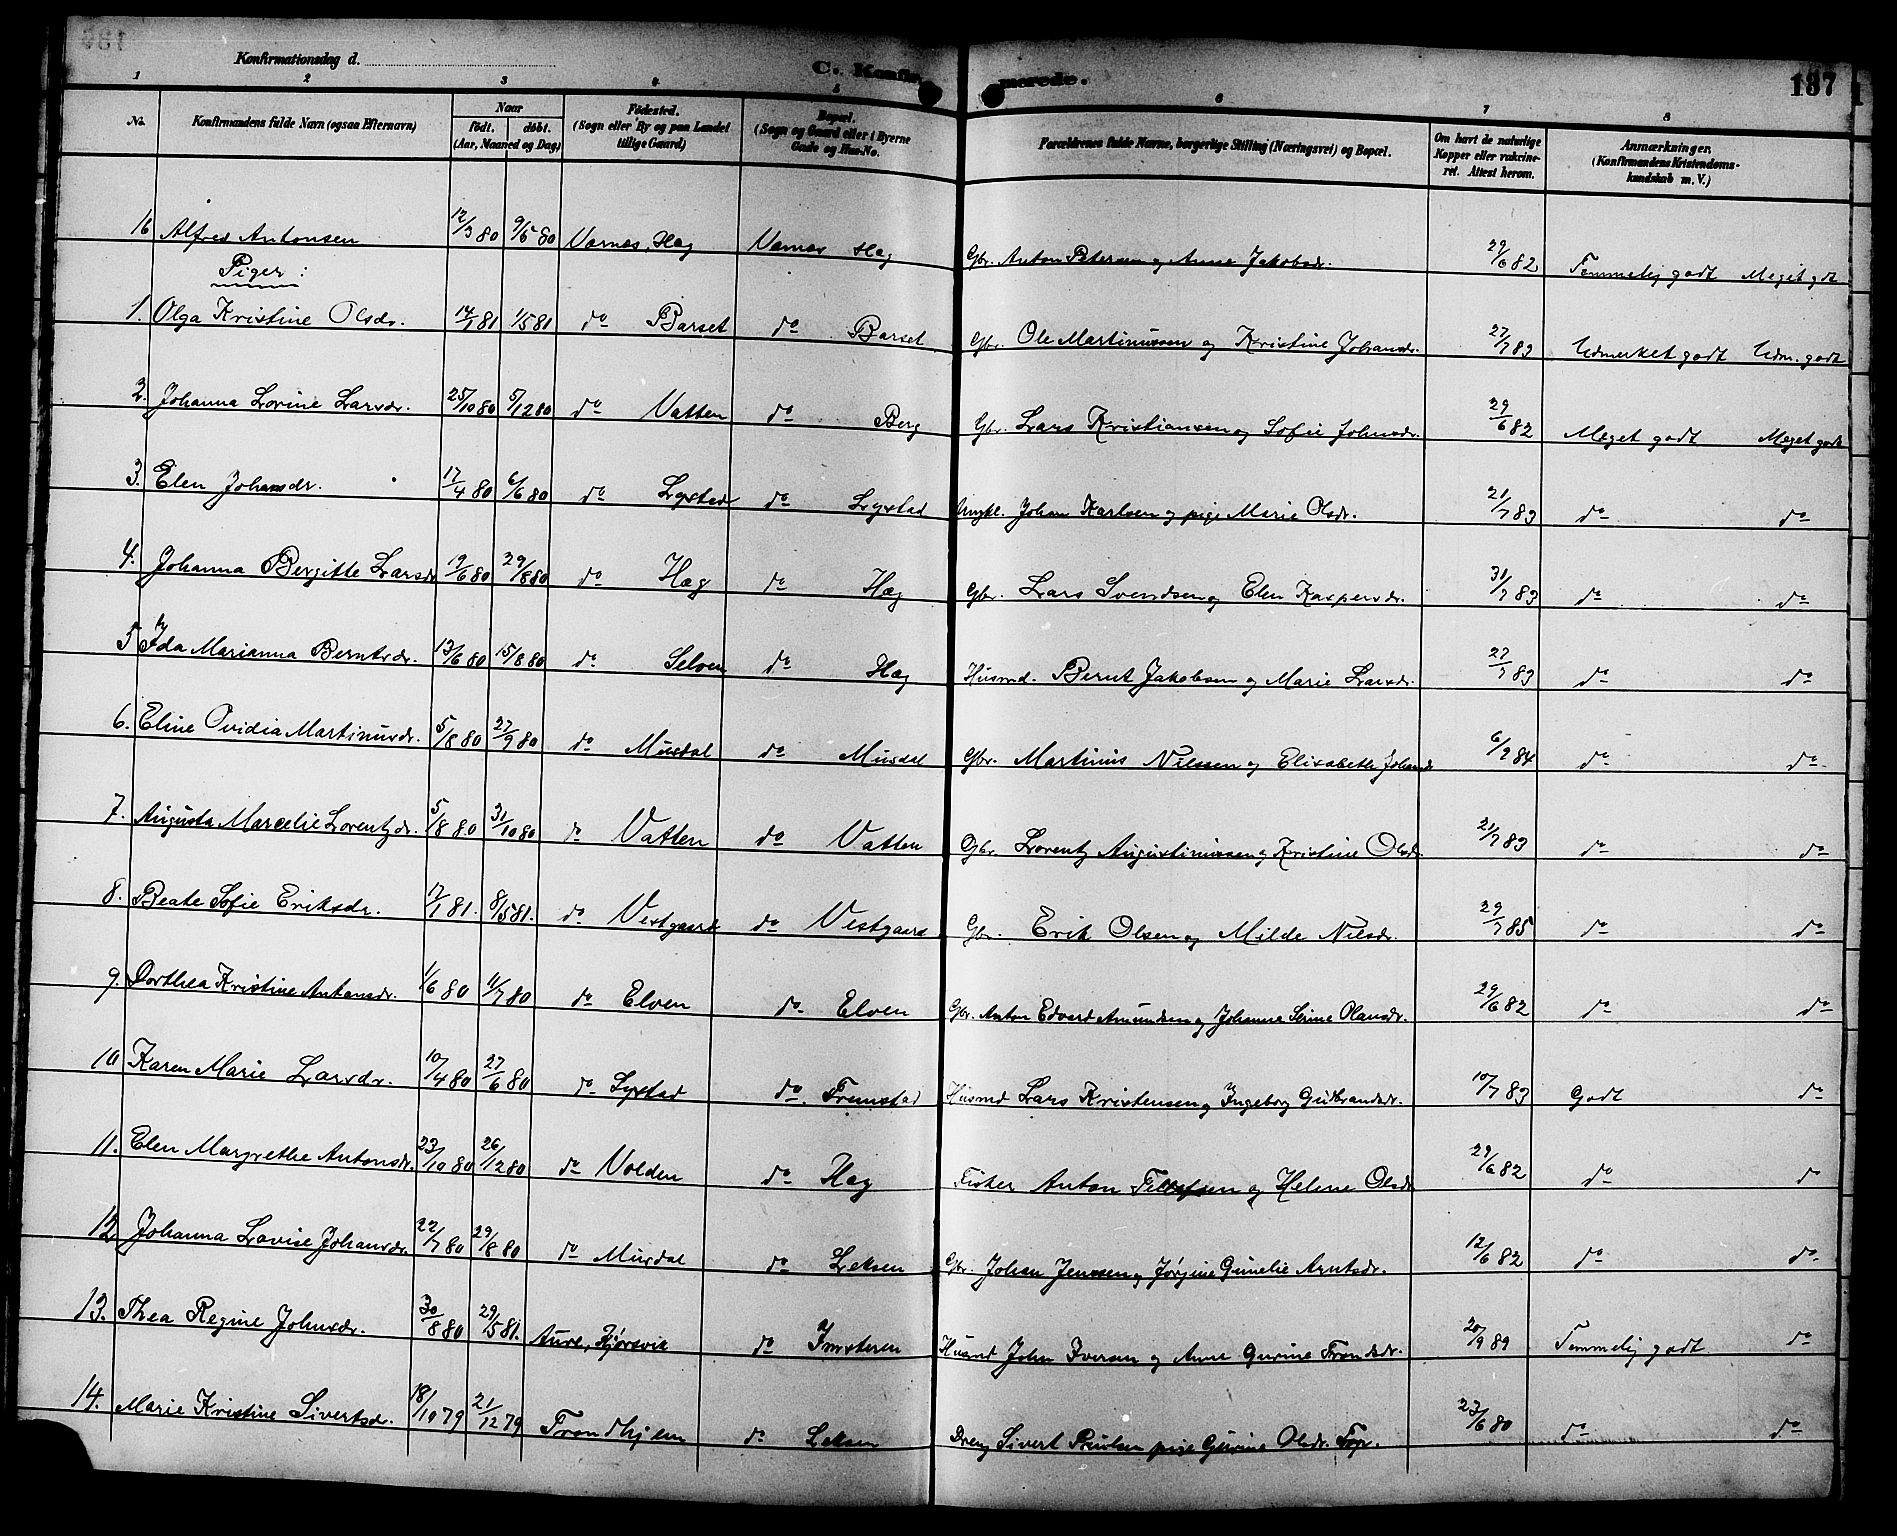 Konfirmationsdag d.
C. Konfir
merede.
137
1 2 3 4 5 6 7 8
No. Konfirmandens fulde Navn (ogsaa Efternavn) Naar født. døbt. (Aar, Maaned og Dag) Fødested. (Sogn eller By og paa Landet tillige Gaard) Bopæl. (Sogn og Gaard eller i Byerne Gade og Hus-No. Forældrenes fulde Navne, borgerlige Stilling (Næringsvei) og Bopæl. Om havt de naturlige Kopper eller vakcineret. Attest herom. Anmærkninger. (Konfirmandens Kristendomskundskab m. V.)
16 Alfred Antonsen 12/3 80 9/5 80 Varnes, Hag Varnes Hag Gbr. Anton Petersen og Anne Jakobsdr. 29/6 82 Temmelig godt Meget godt
Piger:
1. Olga Kristine Olsdr. 14/1 81 1/5 81 do Barset do Barset Gbr. Ole Martinussen og Kristine Johansdr. 27/7 83 Udmerket godt Udm. godt
2. Johanna Lovine Larsdr. 25/10 80 5/12 80 do Vatten do Berg Gbr. Lars Kristiansen og Sofie Johnsdr. 29/6 82 Meget godt Meget godt
3. Elen Johansdr. 17/4 80 6/6 80 do Lystad do Lystad Ungkl. Johan Karlsen og pige Marie Olsdr. 21/7 83 do do
4. Johanna Bergitte Larsdr 19/6 80 29/8 80 do Hag do Hag Gbr. Lars Svendsen og Elen Kaspersdr. 31/7 83 do do
5 Ida Marianna Berntsdr. 13/6 80 15/8 80 do Selven do Hag Husmd. Bernt Jakobsen og Marie Larsdr. 27/7 83 do do
6. Eline Ovidia Martinusdr. 5/8 80 27/9 80 do Musdal do Musdal Gbr. Martinus Nilssen og Elisabeth Johansdr 6/9 84 do do
7. Augusta Marcelie Lorentzdr. 5/8 80 31/10 80 do Vatten do Vatten Gbr. Lorentz Augustinussen og Kristine Olsdr. 21/7 83 do do
8. Beate Sofie Eriksdr. 17/1 81. 8/5 81. do Vestgaard do Vestgaard Gbr. Erik Olsen og Milde Nilsdr. 29/7 85 do do
9. Dorthea Kristine Antonsdr. 1/6 80 11/7 80 do Elven do Elven Gbr. Anton Edvard Amundsen og Johanna Serine Olausdr. 29/6 82 do do
10 Karen Marie Larsdr. 10/4 80 27/6 80 do Lystad do. Fremstad Husmd Lars Kristensen og Ingeborg Gudbrandsdr. 10/7 83 Godt do
11. Elen Margrethe Antonsdr. 23/10 80 26/12 80 do Volden do Hag Fisker Anton og Helene Olsdr 29/6 82 do do
12 Johanna Lovise Johansdr 22/7 80 29/8 80 do Musdal do Leksen Gbr. Johan Jenssen og Jørgine Gunelie Arntsdr. 12/6 82 do do
13. Thea Regine Johnsdr. 30/8 80 29/5 81. Aure, Kjørsvik do Imsteren Husmd John Iversen og Anne Gurine Trondsdr. 20/9 89 Temmelig godt do
14. Marie Kristine Sivertsdr. 18/10 79 21/12 79 Trondhjem do Leksen Dreng Sivert Paulsen pige Gurine Olsdr. 23/6 80 do do